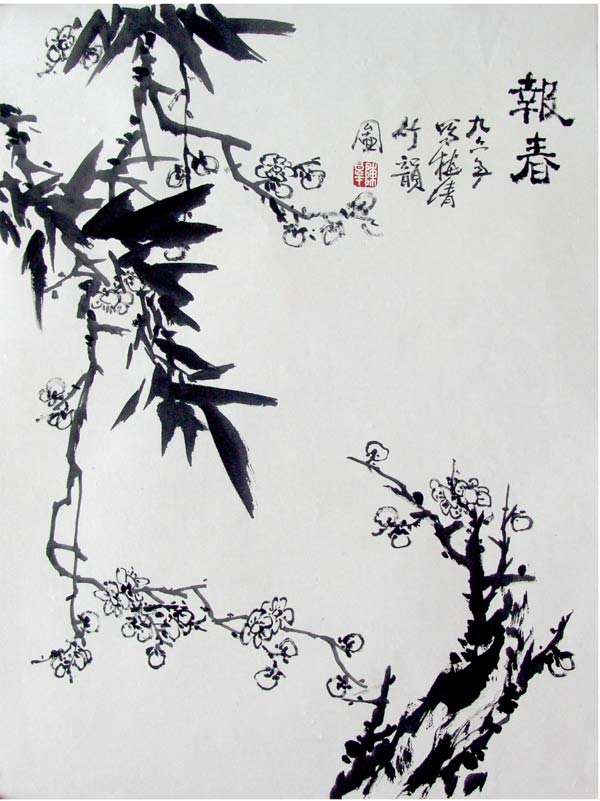 報春
九六年
写梅清
竹韻
圖